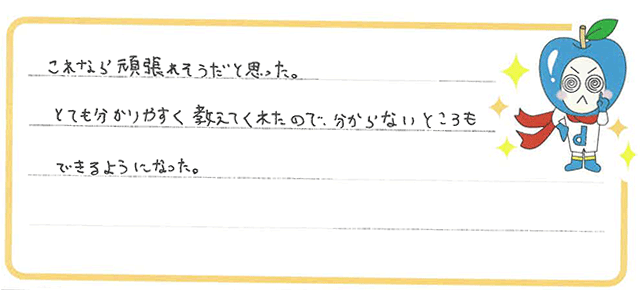 これなら頑張れそうだと思った。
とても分かりやすく教えてくれたので、分からないところも
できるようになった。
d